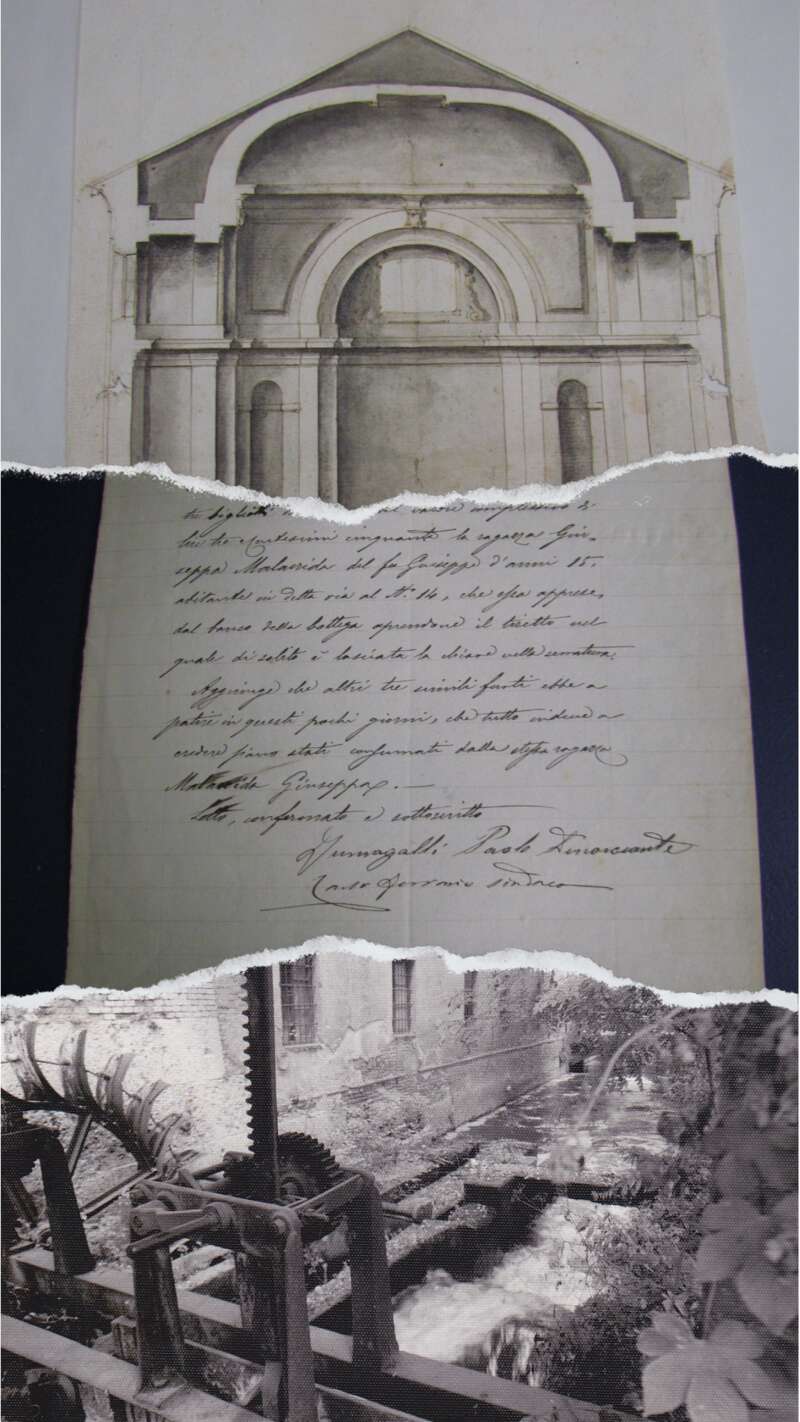 lire tre e centesimi cinquanta la ragazza Giu-
seppa Malacrida del fu Giuseppe d'anni 15,
abitante in detta via al N.º 14, che essa apprese,
dal banco della bottega aprendone il tiretto nel
quale di solito è lasciata la chiave nella serratura.
Aggiunge che altri tre simili furti ebbe a
patire in questi pochi giorni, che tutto induce a
credere siano stati consumati dalla stessa ragazza
Malacrida Giuseppa. —
Letto, confermato e sottoscritto
Fumagalli Paolo Denunciante
sindaco